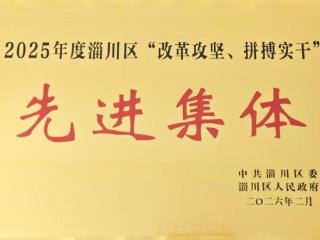 2025年度淄川区“改革攻坚、拼搏实干”
先进集体
中共淄川区委
淄川区人民政府
二〇二六年二月